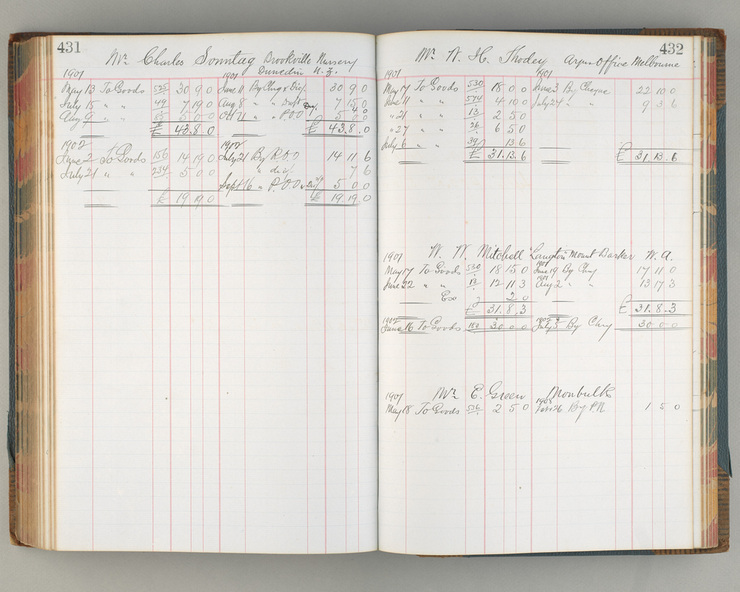 431
Mr. Charles Sonntag Brookville Nursery
Dunedin N.Z.
1901 1901
May 13 To Goods 525 30 9 0 June 11 By Chq & Dis 30 9 0
July 15 " " 49 7 19 0 Aug 8 " " 7 15 0
Aug 9 " " 5 0 0 Oct 11 " P.O.O 5 0 0
£ 43.8.0 £ 43.8.0
1902 1902
June 2 To Goods 156 14 19 0 July 21 By P.O.O 14 11 6
July 21 " " 234 5 0 0 " dis 7 6
Sept 16 " P.O.O 5 0 0
£ 19 19 0 £ 19.19.0
432
Mr. W. H. Thodey Argus Office Melbourne
1901 1901
May 17 To Goods 530 18 0 0 June 3 By Cheque 22 10 0
June 11 " " 574 4 10 0 July 24 " " 9 3 6
" 21 " " 13 2 5 0
" 27 " " 26 6 5 0
July 6 " " 39 13 6
£ 31.13.6 £ 31.13.6
W. W. Mitchell "Langton" Mount Barker W.A.
1901 1901
May 17 To Goods 530 18 15 0 June 19 By Chq 17 11 0
June 22 " " 12 12 11 3 Aug 2 " " 13 17 3
2 0
£ 31.8.3 £ 31.8.3
1902 1902
June 16 To Goods 180 30 0 0 July 5 By Chq 30 0 0
1901 Mr. E. Green Monbulk
May 18 To Goods 2 5 0 26 By P.N 1 5 0